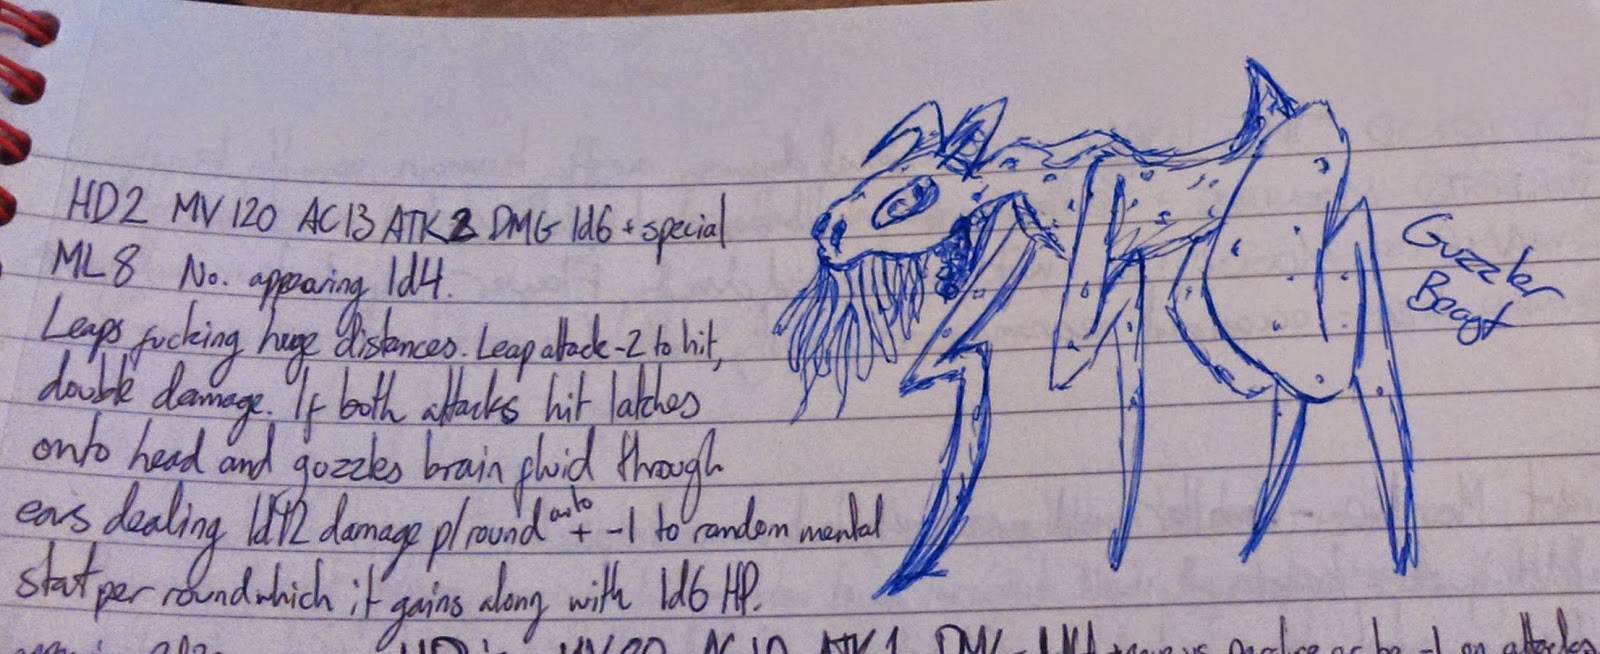 HD2 MV 120 AC13 ATK 2 DMG 1d6 + special
ML 8 No. appearing 1d4.
Leaps fucking huge distances. Leap attack -2 to hit,
double damage. If both attacks hit latches
onto head and guzzles brain fluid through
ears dealing 1d12 damage p/round auto + -1 to random mental
stat per round which it gains along with 1d6 HP.
Guzzler
Beast
MV 90 AC 10 ATK 1 DMG on attacks